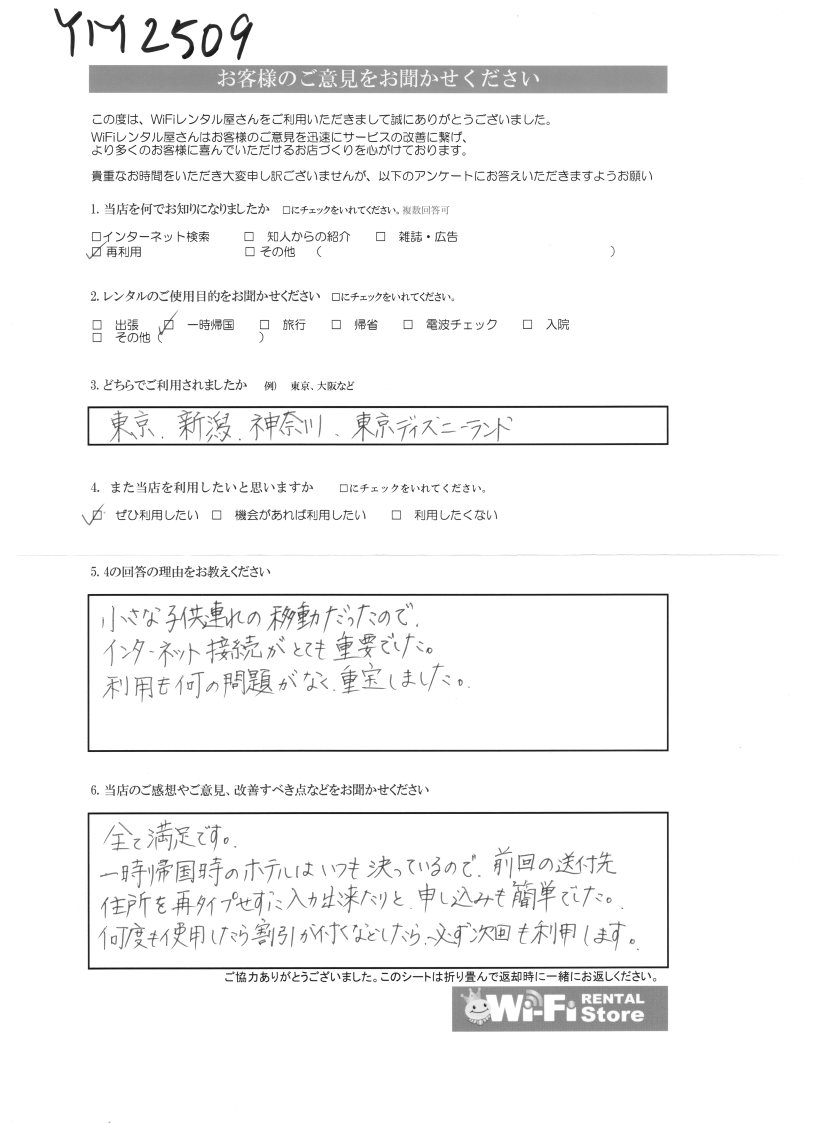 YM2509
お客様のご意見をお聞かせください
この度は、WiFiレンタル屋さんをご利用いただきまして誠にありがとうございました。
WiFiレンタル屋さんはお客様のご意見を迅速にサービスの改善に繋げ、
より多くのお客様に喜んでいただけるお店づくりを心がけております。
貴重なお時間をいただき大変申し訳ございませんが、以下のアンケートにお答えいただきますようお願い
1. 当店を何でお知りになりましたか □にチェックをいれてください。複数回答可
□インターネット検索 □ 知人からの紹介 □ 雑誌・広告
☑ 再利用 □ その他 ( )
2. レンタルのご使用目的をお聞かせください □にチェックをいれてください。
□ 出張 ☑ 一時帰国 □ 旅行 □ 帰省 □ 電波チェック □ 入院
□ その他 ( )
3. どちらでご利用されましたか 例) 東京、大阪など
東京、新潟、神奈川、東京ディズニーランド
4. また当店を利用したいと思いますか □にチェックをいれてください。
☑ ぜひ利用したい □ 機会があれば利用したい □ 利用したくない
5. 4の回答の理由をお教えください
小さな子供連れの移動だったので、
インターネット接続がとても重要でした。
利用も何の問題がなく、重宝しました。
6. 当店のご感想やご意見、改善すべき点などをお聞かせください
全て満足です。
一時帰国時のホテルはいつも決っているので、前回の送付先
住所を再タイプせずに入力出来たりと、申し込みも簡単でした。
何度も使用したら割引が付くなどしたら、必ず次回も利用します。
ご協力ありがとうございました。このシートは折り畳んで返却時に一緒にお返しください。
Wi-Fi RENTAL Store